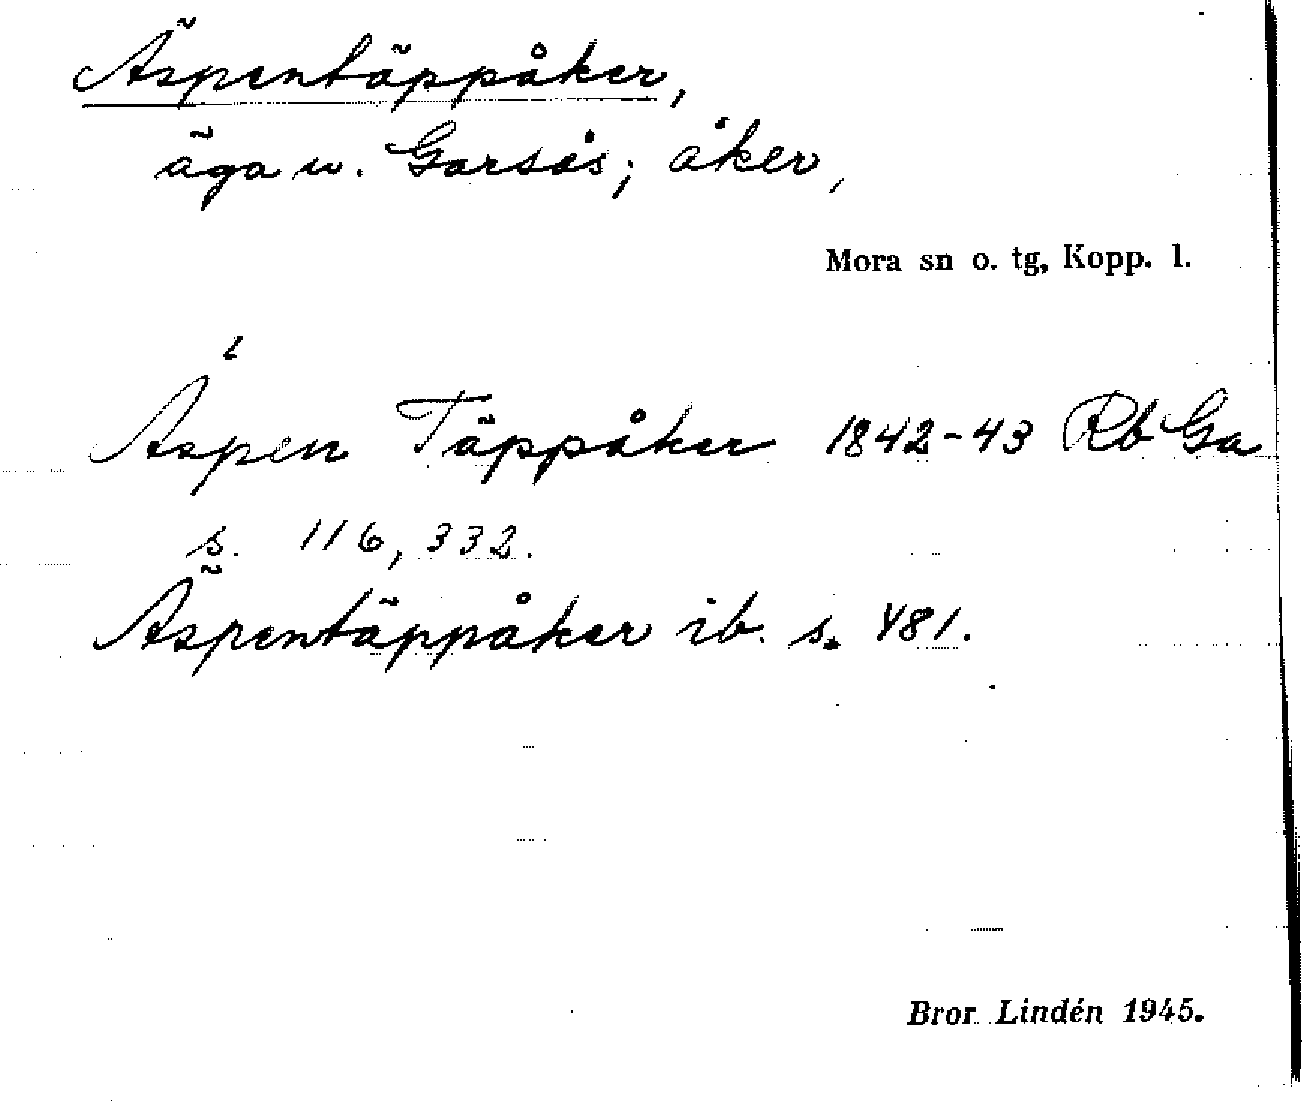 Äspentäppåker,
äga u. Garsås; åker,
Mora sn o. tg, Kopp. l.
Äspen Täppåker 1842-43 Rb Ga
s. 116, 332.
Äspentäppåker ib. s. 481.
Bror Lindén 1945.